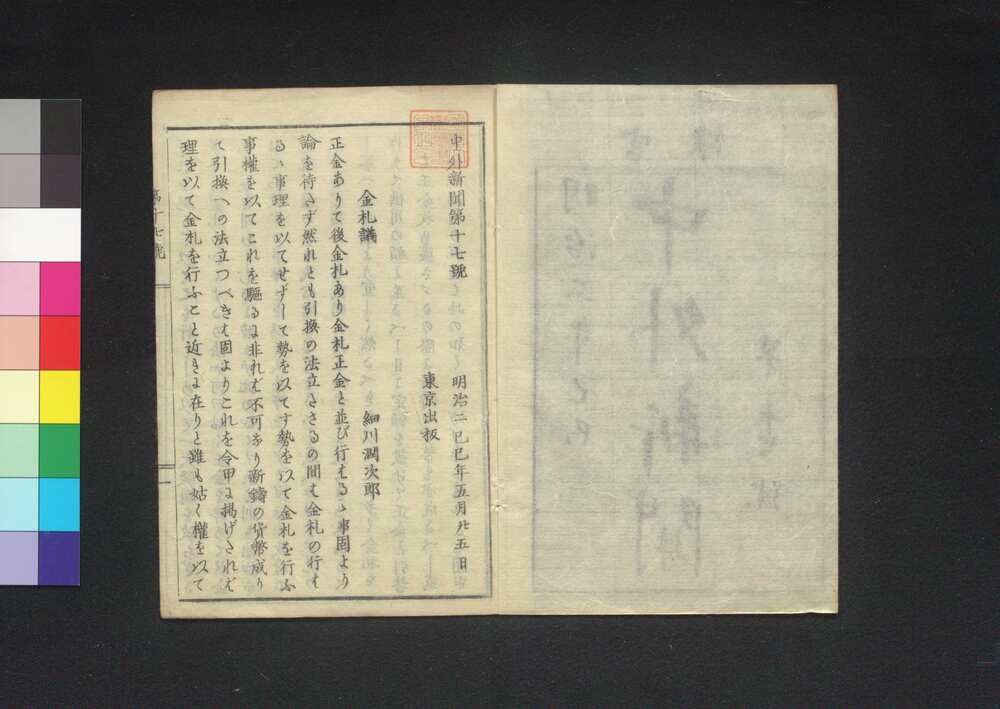 中外新聞第十七號
明治二己巳年五月廿五日
東京出板
金札議
細川潤次郎
正金ありて後金札あり金札正金と並び行はるゝ事固より
論を待さず然れとも引換の法立ささるの間は金札の行は
るゝ事理を以てせずして勢を以てす勢を以て金札を行ふ
事權を以てこれを驅るに非れば不可なり新鑄の貨幣成り
て引換への法立つべきは固よりこれを令甲に掲げされば
理を以て金札を行ふこと近きに在りと雖も姑く權を以て
第十七號